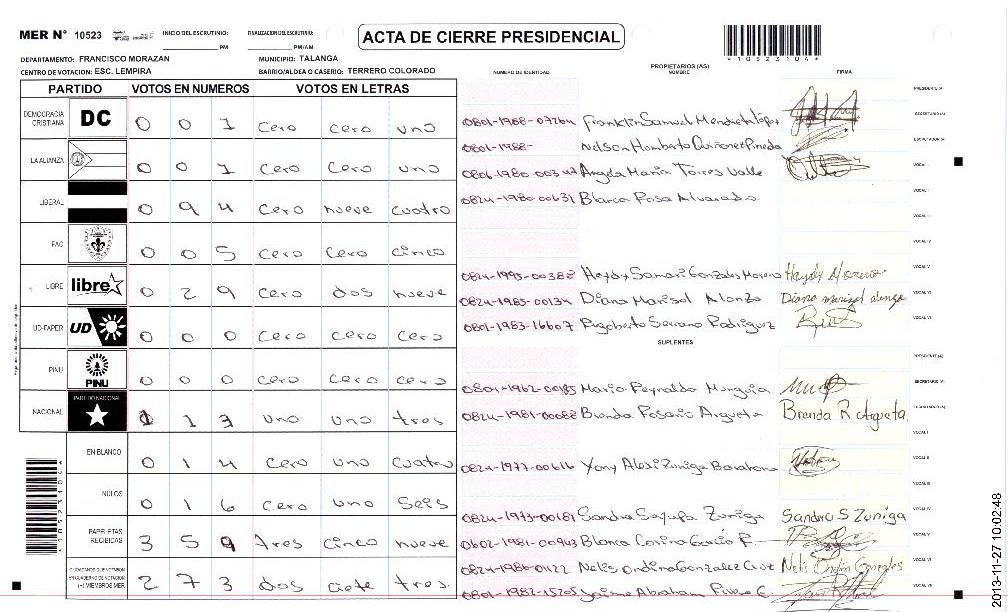 MER N° 10523
INICIO DEL ESCRUTINIO: PM
FINALIZACION DEL ESCRUTINIO: PM/AM
ACTA DE CIERRE PRESIDENCIAL
*10523104*
DEPARTAMENTO: FRANCISCO MORAZAN
MUNICIPIO: TALANGA
CENTRO DE VOTACION: ESC. LEMPIRA
BARRIO/ALDEA O CASERIO: TERRERO COLORADO
NUMERO DE IDENTIDAD
PROPIETARIOS (AS)
NOMBRE
FIRMA
PARTIDO VOTOS EN NUMEROS VOTOS EN LETRAS
DEMOCRACIA CRISTIANA DC 0 0 1 Cero cero uno
LA ALIANZA 0 0 1 Cero Cero uno
LIBERAL 0 9 4 Cero nueve cuatro
PAC 0 0 5 Cero Cero cinco
LIBRE libre 0 2 9 Cero dos nueve
UD-FAPER UD 0 0 0 Cero Cero Cero
PINU PINU 0 0 0 Cero Cero cero
NACIONAL PARTIDO NACIONAL 1 1 3 uno uno tres
EN BLANCO 0 1 4 Cero uno Cuatro
NULOS 0 1 6 Cero uno Seis
PAPELETAS RECIBIDAS 3 5 9 tres cinco nueve
CIUDADANOS QUE VOTARON EN CUADERNO DE VOTACION (+) MIEMBROS MER 2 7 3 dos ciete tres
PRESIDENTE (A)
0801-1988-07264 Franklin Samuel Mendieta
SECRETARIO (A)
0801-1988- Nelson Homberto Quiñonez Pineda
ESCRUTADOR (A)
Angela Maria Torres Valle
VOCAL I
0824-1980-00631 Blanca Rosa Alvarado
0824-1995-00388 Heydy Samari Gonzales Moreno Haydy Moreno
VOCAL V
0824-1985-00134 Diana Marisol Alonzo Diana marisol
VOCAL VI
0801-1983-16607 Rigoberto Serrano Rodriguez
VOCAL VII
SUPLENTES
PRESIDENTE (A)
0801-1962-00185 Mario Reynaldo Munguia
SECRETARIO (A)
0824-1981-00088 Brenda Rosario Argueta Brenda R Argueta
0824-1977-00616 Yony Alexi Zuniga Barahona
0824-1973-00181 Sandra Zuniga Sandra S Zuniga
0602-1981-00943 Blanca
0824-1986-0122 Nelis Ondina Gonzalez Cruz Nelis Ondina Gonzales
0801-1982-15205 Abraham
*10523104*
2013-11-27 10:02:48